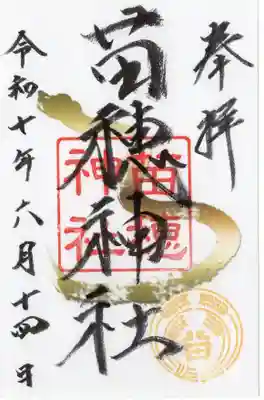 奉拝
苗穂神社
苗穂
神社
令和七年六月十四日
苗